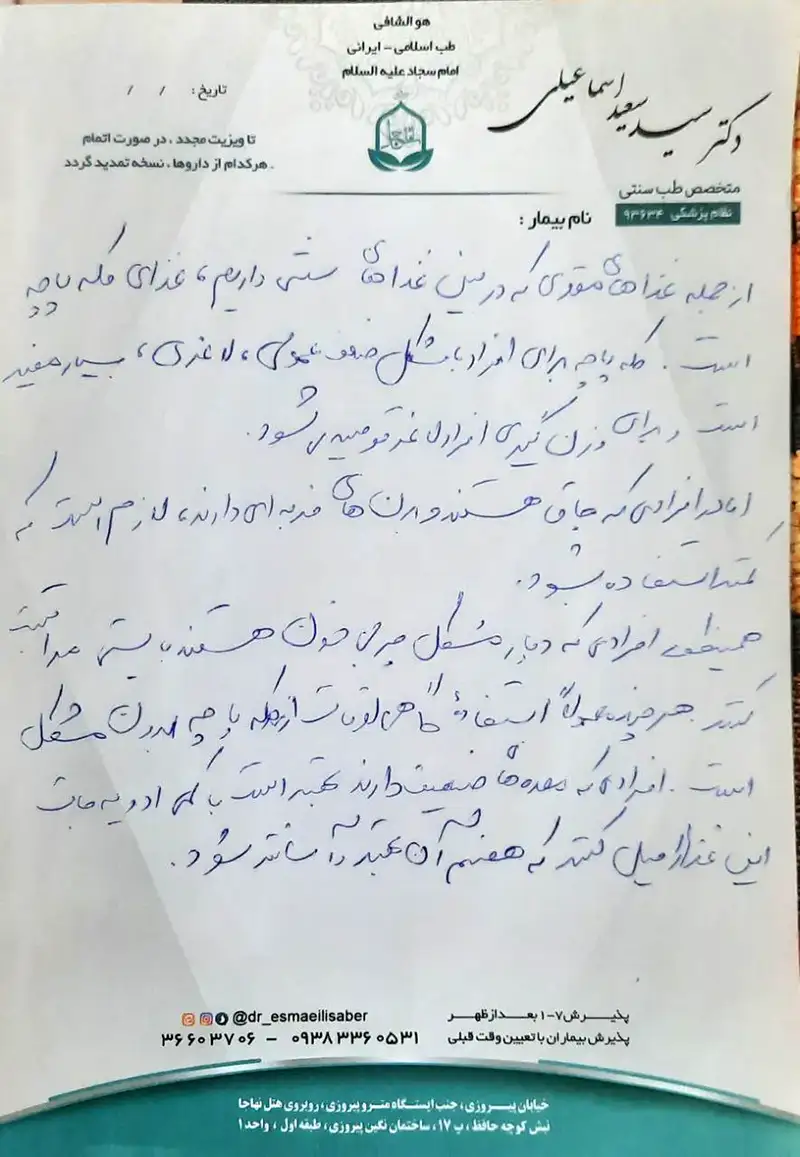 هو الشافی
طب اسلامی - ایرانی
امام سجاد علیه السلام
دکتر سید سعید اسماعیلی
متخصص طب سنتی
نظام پزشکی ۹۳۶۳۴
تاریخ: / /
تا ویزیت مجدد ، در صورت اتمام
هرکدام از داروها ، نسخه تمدید گردد .
نام بیمار :
از جمله غذاهای مقوی که در بین غذاهای سنتی داریم، غذای کله پاچه
است . کله پاچه برای افراد با مشکل ضعف عمومی، لاغری، بسیار مفید
است و برای وزن گیری افراد لاغر توصیه می شود.
اما در افرادی که چاق هستند و بدن های فربه ای دارند، لازم است که
کمتر استفاده بشود.
همینطور افرادی که دچار مشکل چربی خون هستند بایستی مراقبت
کنند. هر چند معمولاً استفادهٔ گاهی اوقات از کله پاچه بدون مشکل
است . افرادی که معده های ضعیف دارند بهتر است با کمی ادویه جات
این غذا را میل کنند که هضم آن بهتر و آسانتر شود .
پذیرش ۷-۱ بعد از ظهر
پذیرش بیماران با تعیین وقت قبلی
@dr_esmaeilisaber
۳۶۶۰۳۷۰۶ - ۰۹۳۸۳۳۶۰۵۳۱
خیابان پیروزی ، جنب ایستگاه مترو پیروزی ، روبروی هتل نهاجا
نبش کوچه حافظ ، پ ۱۷ ، ساختمان نگین پیروزی ، طبقه اول ، واحد ۱